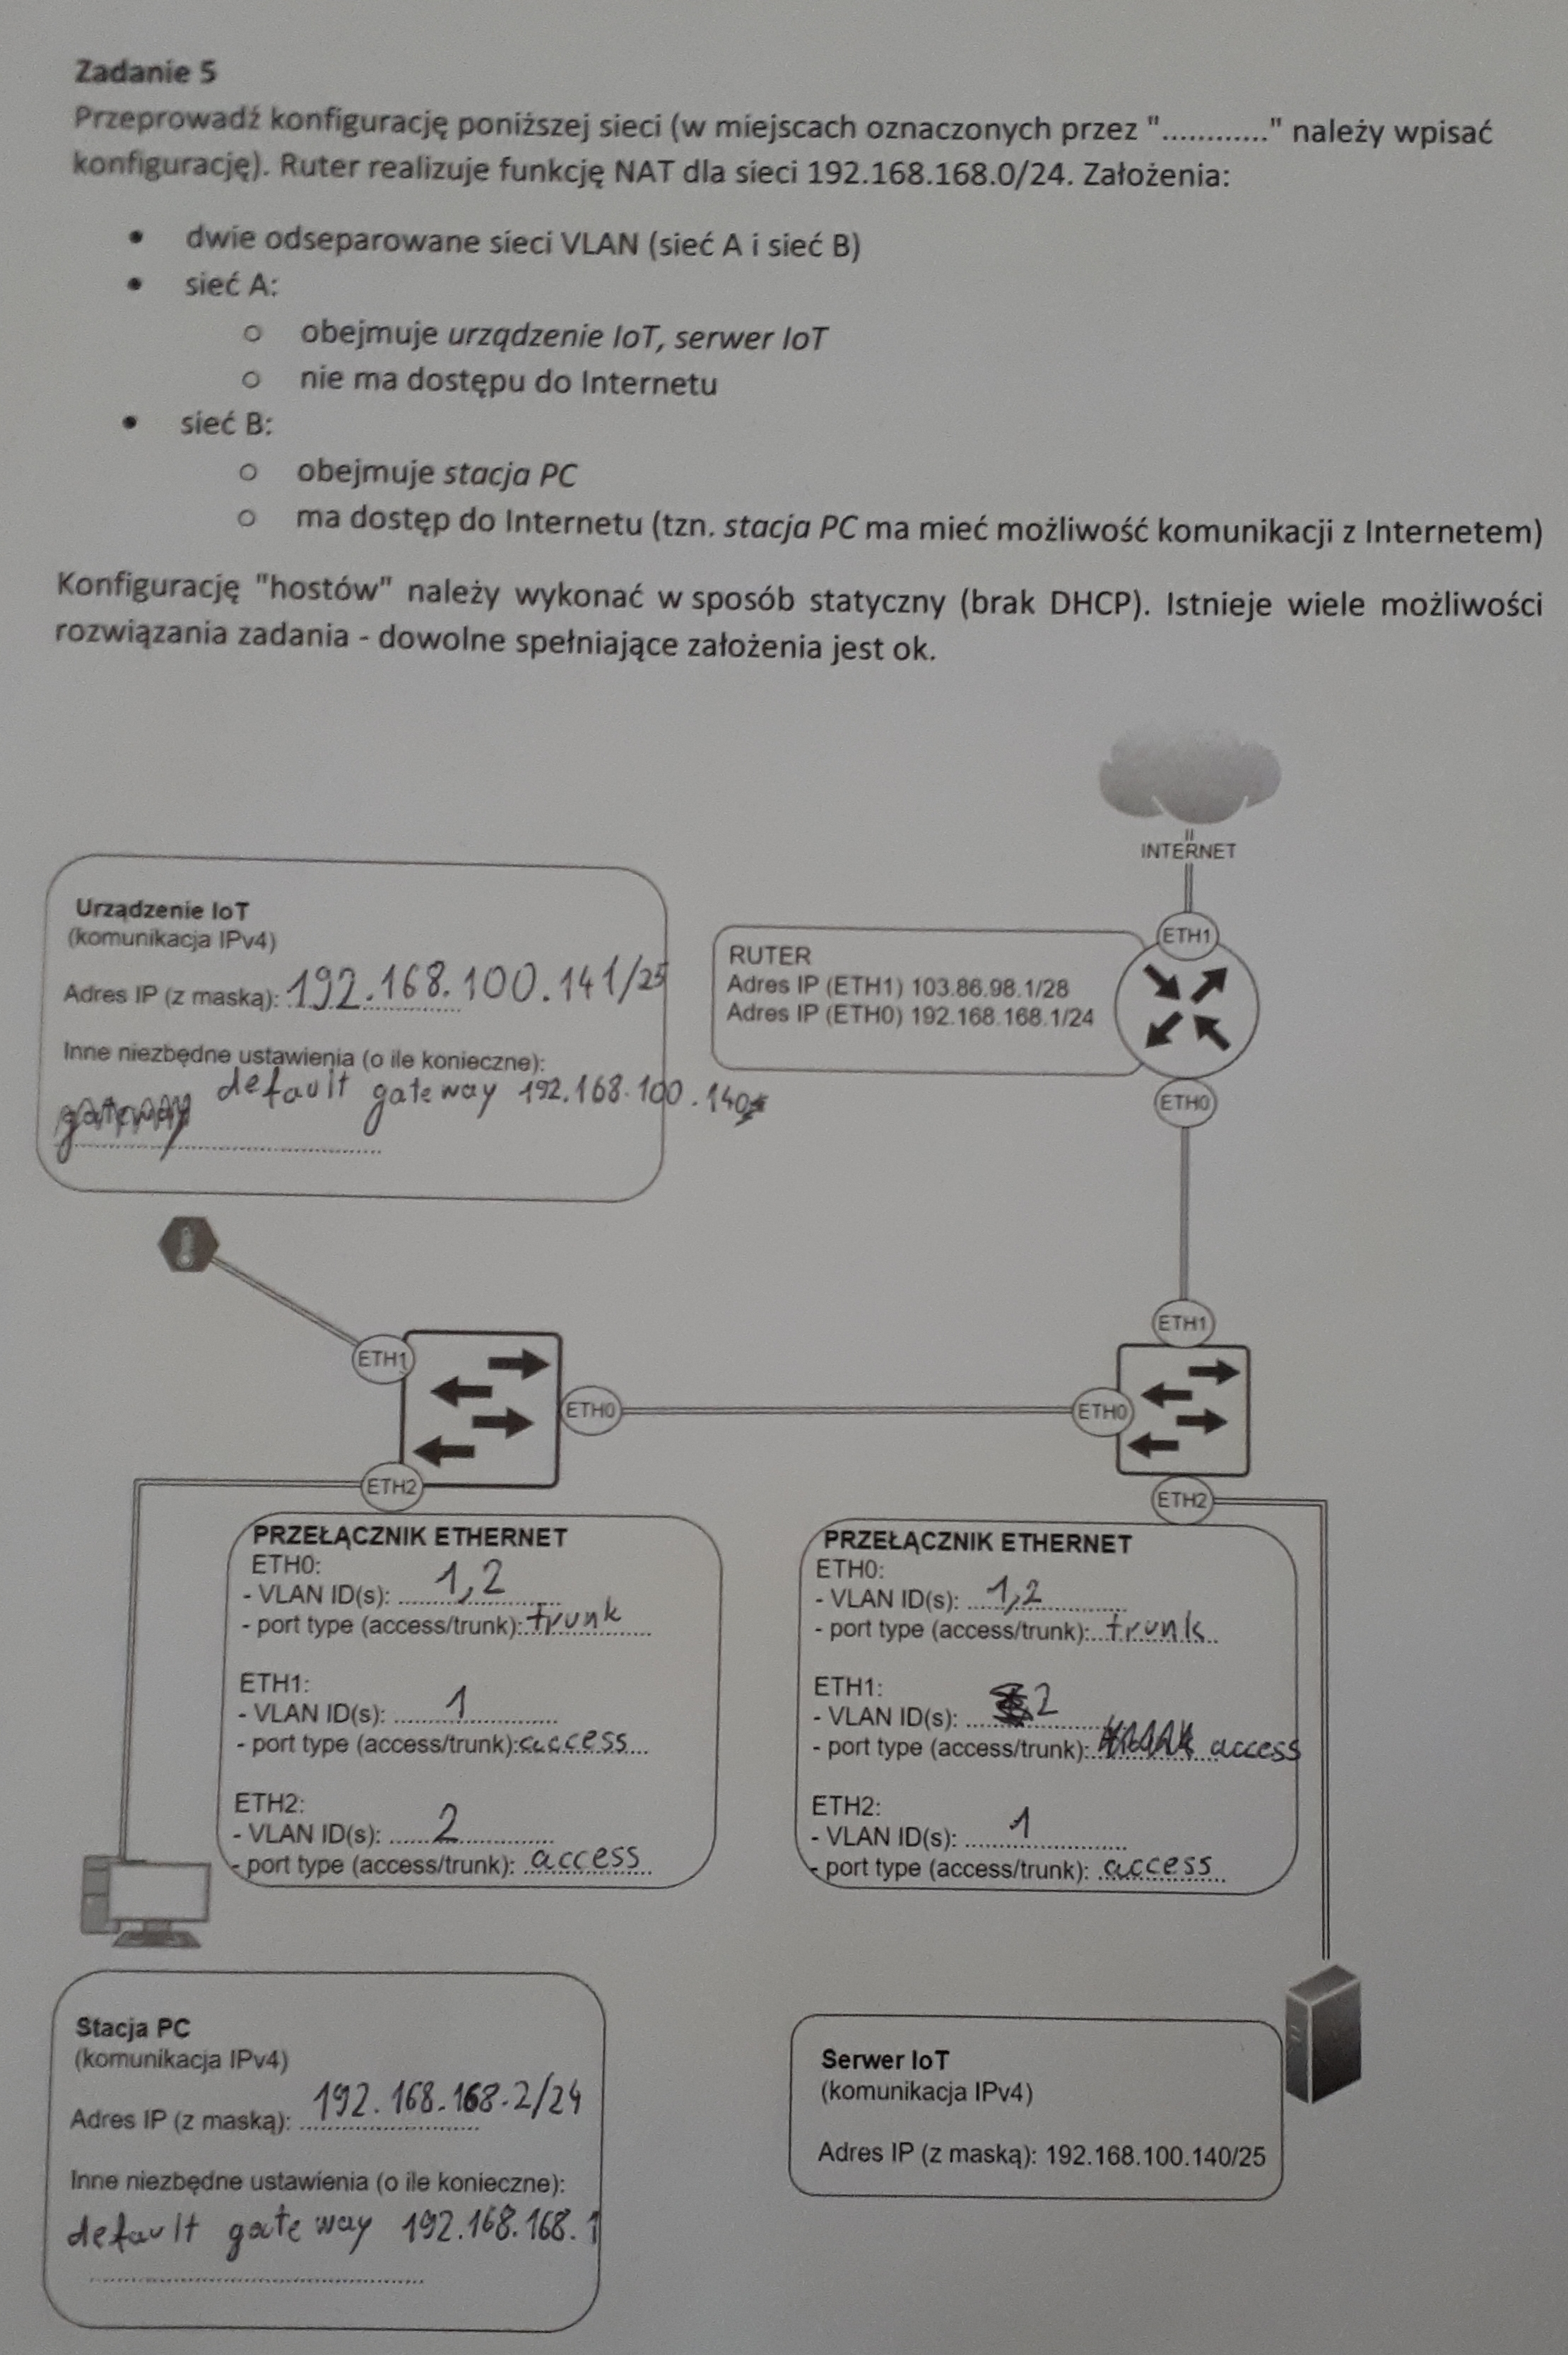 Zadanie 5
Przeprowadź konfigurację poniższej sieci (w miejscach oznaczonych przez "............" należy wpisać
konfigurację). Ruter realizuje funkcję NAT dla sieci 192.168.168.0/24. Założenia:
• dwie odseparowane sieci VLAN (sieć A i sieć B)
• sieć A:
o obejmuje urządzenie IoT, serwer IoT
o nie ma dostępu do Internetu
• sieć B:
o obejmuje stacja PC
o ma dostęp do Internetu (tzn. stacja PC ma mieć możliwość komunikacji z Internetem)
Konfigurację "hostów" należy wykonać w sposób statyczny (brak DHCP). Istnieje wiele możliwości
rozwiązania zadania - dowolne spełniające założenia jest ok.
INTERNET
ETH1
Urządzenie IoT
(komunikacja IPv4)
Adres IP (z maską): 192.168.100.141/25
Inne niezbędne ustawienia (o ile konieczne):
gateway default gateway 192.168.100.140
RUTER
Adres IP (ETH1) 103.86.98.1/28
Adres IP (ETH0) 192.168.168.1/24
ETH0
ETH1
ETH1
ETH0
ETH0
ETH2
ETH2
PRZEŁĄCZNIK ETHERNET
ETH0:
- VLAN ID(s): 1,2
- port type (access/trunk): trunk
ETH1:
- VLAN ID(s): 1
- port type (access/trunk): access
ETH2:
- VLAN ID(s): 2
- port type (access/trunk): access
PRZEŁĄCZNIK ETHERNET
ETH0:
- VLAN ID(s): 1,2
- port type (access/trunk): trunk
ETH1:
- VLAN ID(s): 2
- port type (access/trunk): access
ETH2:
- VLAN ID(s): 1
- port type (access/trunk): access
Stacja PC
(komunikacja IPv4)
Adres IP (z maską): 192.168.168.2/24
Inne niezbędne ustawienia (o ile konieczne):
default gateway 192.168.168.1
Serwer IoT
(komunikacja IPv4)
Adres IP (z maską): 192.168.100.140/25